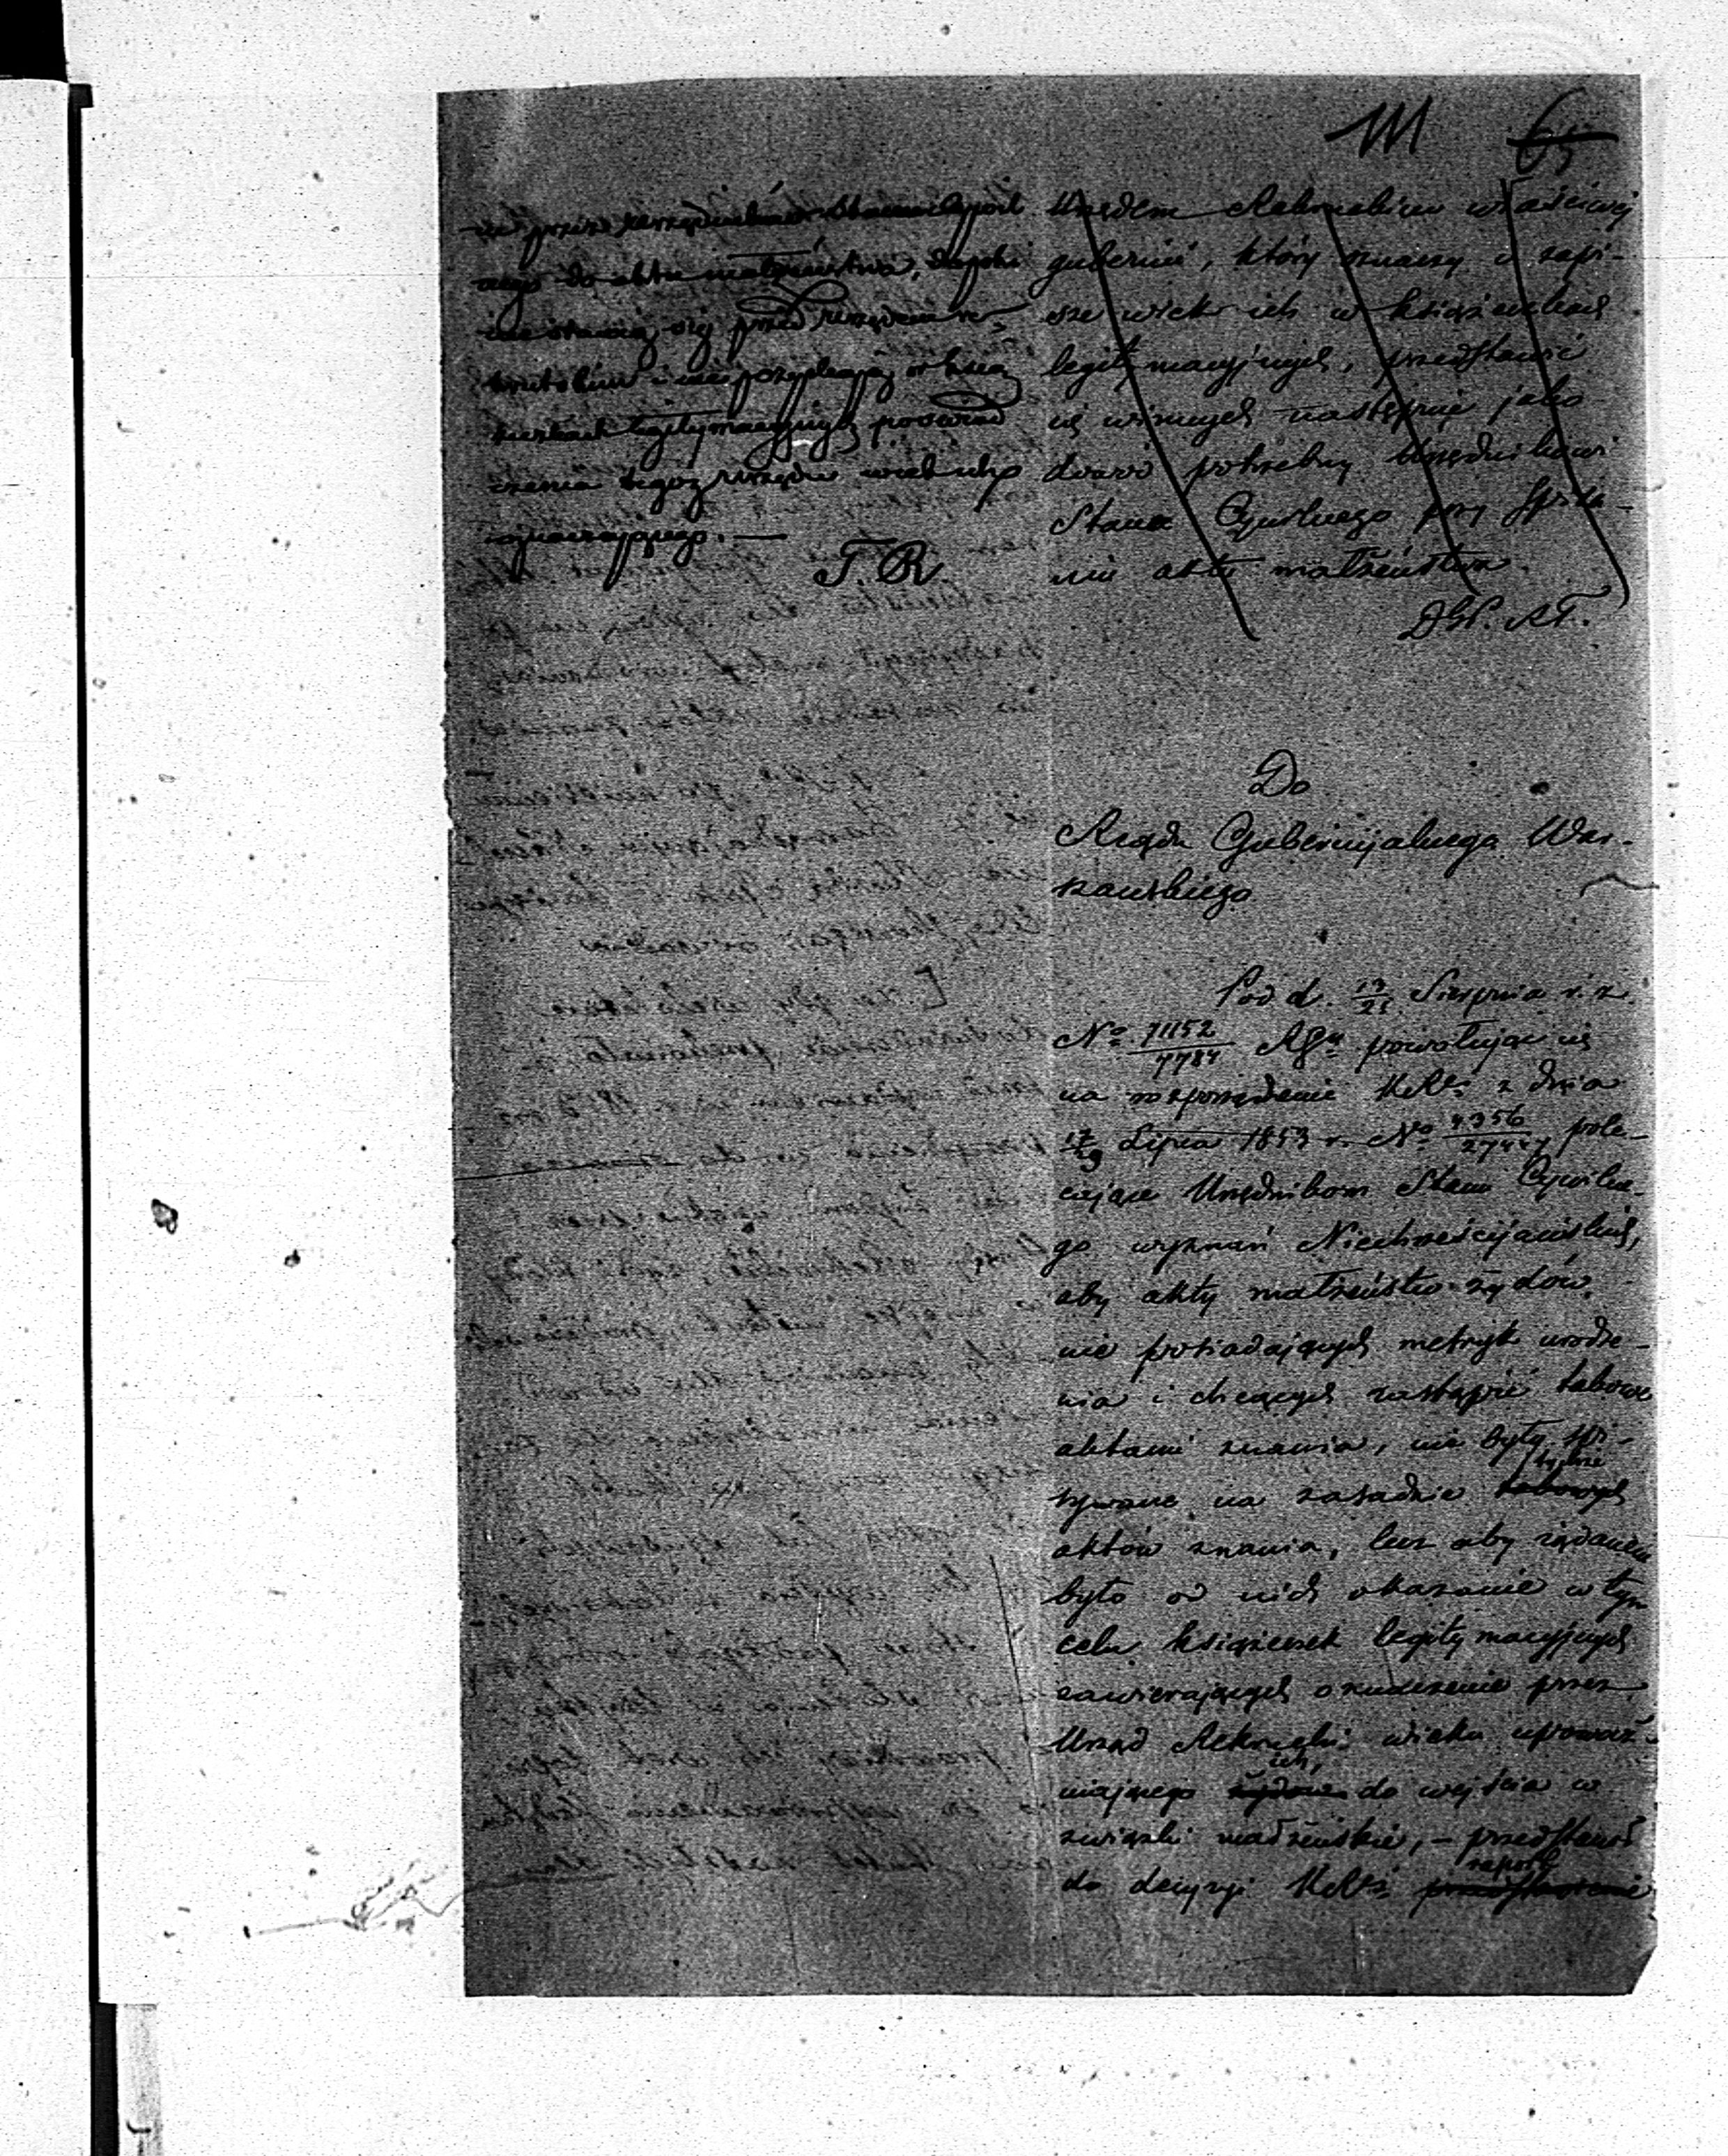 111 65
nie przez
nego do aktu małżeństwa, dopóki
nie stawią się przed Urzędem re-
krutskim i nie przyłożą w ksią
żeczkach legitymacyjnych poświad
czenia tegoż Urzędu wiek ich
oznaczającego. —
T. R.
Urzędem Rekruckim właściwej
gubernii, który znaczy i zapi-
sze wiek ich w książeczkach
legitymacyjnych, przedstawić
się winnych następnie jako
dowód potrzebny Urzędnikowi
Stanu Cywilnego przy spisa-
niu aktu małżeństwa.
Do
Rządu Gubernijalnego War-
szawskiego
Pod d. 13/25 Sierpnia r. z.
No 71152/7784 powołując się
na rozporządzenie KRS z dnia
17/29 Lipca 1853 r. No 4356/27447 pole-
cające Urzędnikom Stanu Cywilne-
go wyznań Niechrześcijańskich,
aby akty małżeństw żydów,
nie posiadających metryk urodze-
nia i chcących zastąpić takowe
aktami znania, nie były spi-
sywane na zasadzie tychże takowych
aktów znania, lecz aby żądanem
było od nich okazanie w tym
celu książeczek legitymacyjnych
zawierających oznaczenie przez
Urząd Rekrucki wieku upoważ-
niającego ich, żydów do wejścia w
związki małżeńskie, — przedstawił
do decyzyi KRS raport przedstawienie